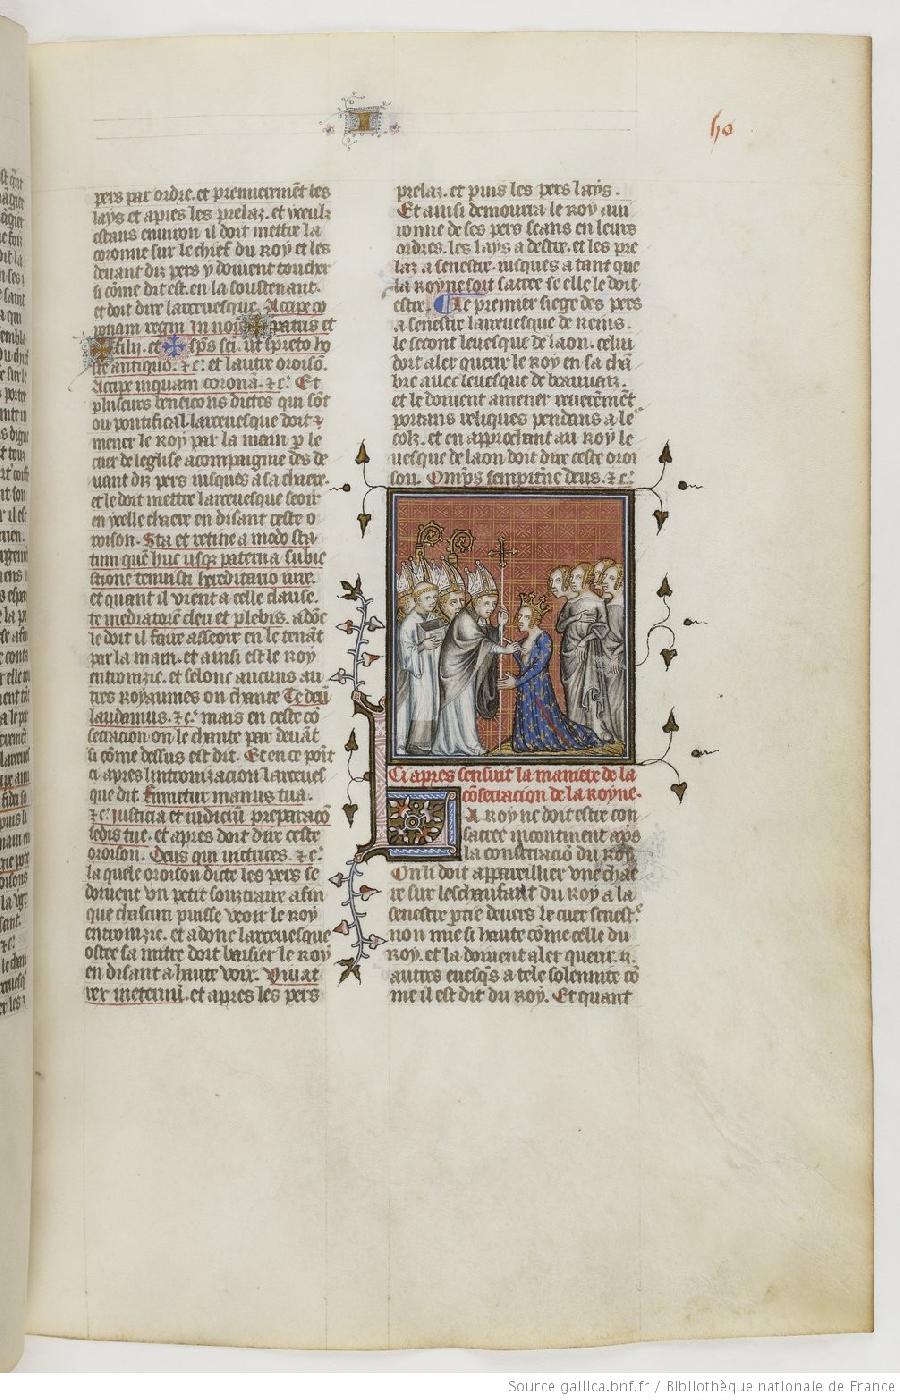 I
pers par ordre. et premierement les
lays et apres les prelaz. et yceulz
estans environ il doit mettre la
coronne sur le chief du Roy et les
devant diz pers y doivent toucher
si cõme dit est. en la soustenant.
et doit dire larcevesque. Accipe co
ronam regni In noīe ✠ patris et
✠ filii. et ✠ sp̃s sc̃i. ut sp̃reto ho
ste antiquo. ⁊c̃. et lautre oroison.
Accipe inquam coronã. ⁊c̃. Et
plusieurs beneicons dictes qui sõt
ou pontifical. larcevesque doit
mener le Roy par la main p le
cuer de leglise acompaigne des de
vant diz pers iusques a sa chaiere.
et le doit mettre larcevesque seoir
en ycelle chaiere en disant ceste o
roison. Sta et retine a modo sta
tum quẽ huc usq; paterna subie
ctione tenuisti hereditario iure.
et quant il vient a celle clause.
te mediatorẽ cleri et plebis. adõc
le doit il faire asseoir en le tenãt
par la main. et ainsi est le Roy
intronizie. et selonc aucuns au
tres Royaumes on chante Te deũ
laudamus. ⁊c̃. mais en ceste cõ
secration on le chante par devãt
si cõme dessus est dit. Et en ce poĩt
ci apres lintronizacion larceves
que dit. firmetur manus tua.
⁊c̃. iusticia et iudiciũ preparacõ
sedis tue. et apres doit dire ceste
oroison. Deus qui
la quele oroison dicte les pers se
doivent un petit soutraire afin
que chascun puisse veoir le Roy
intronizie. et adonc larcevesque
ostee sa mitre doit baisier le Roy
en disant a haute voix. Vivat
rex ineternũ. et apres les pers
prelaz. et puis les pers lays.
Et ainsi demourra le Roy avi
ronne de ses pers seans en leurs
ordres. les lays a destre. et les pre
laz a senestre. iusques a tant que
la Royne soit sacree se elle le doit
estre. Le premier siege des pers
a senestre larcevesque de Reins.
le secont levesque de laon. celui
doit aler querir le Roy en sa chã
bre avec levesque de beauvaiz.
et le doivent amener
portans reliques pendans a le
colz. et en approchant au Roy le
vesque de laon doit dire ceste oroi
son. Omp̃s sempiterne deus. ⁊c̃.
Ci apres sensuit la maniere de la
cõsecracion de la Royne.
La Royne doit estre con
sacree incontinent ap̃s
la consecraciõ du Roy.
On li doit appareillier une chaie
re sur leschaufaut du Roy a la
senestre p̃tie devers le cuer senest.
non mie si haute cõme celle du
Roy. et la doivent aler querir. ii.
autres evesq̃s a tele solennite cõ
me il est dit du Roy. Et quant
Source gallica.bnf.fr / Bibliothèque nationale de France